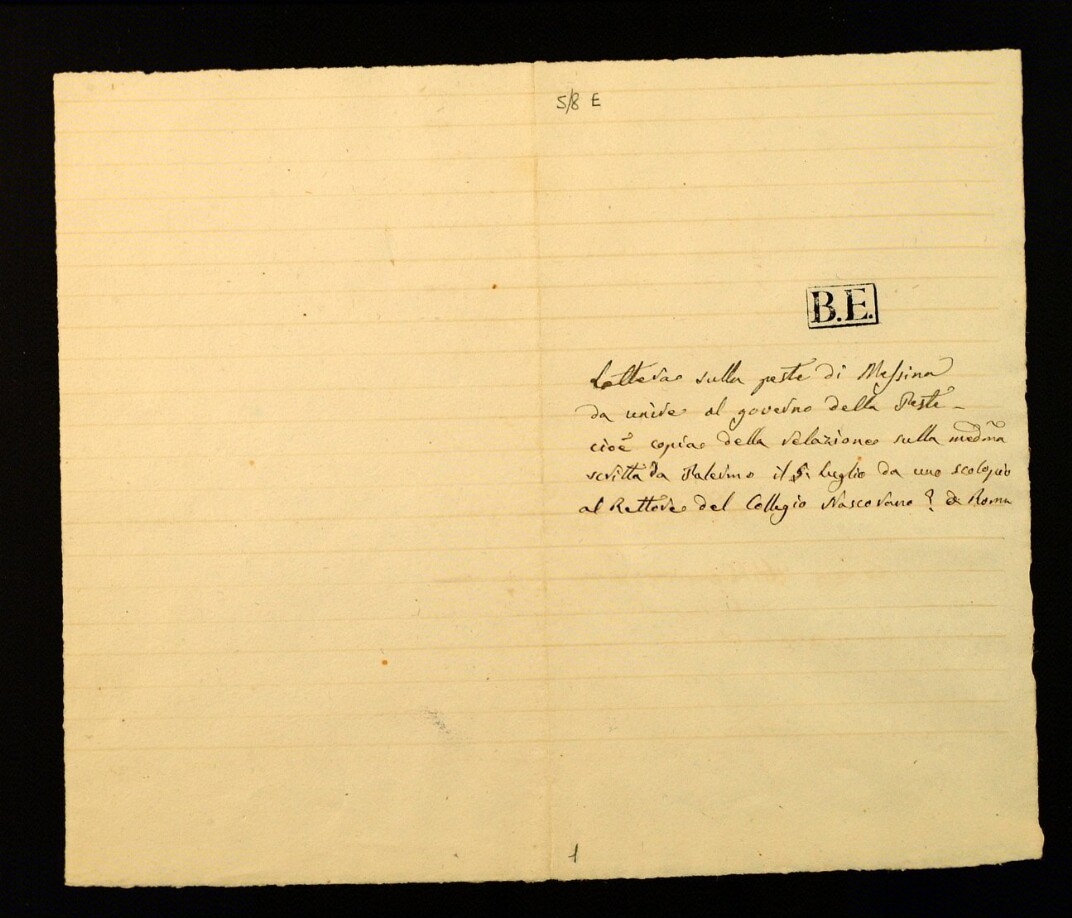 5/8 E
B.E.
Lettera sulla peste di Messina
da unire al governo della Peste -
cioè copia della relazione sulla medma
scritta da Palermo il 5 Luglio da uno scolopio
al Rettore del Collegio Nascovano ? di Roma
1